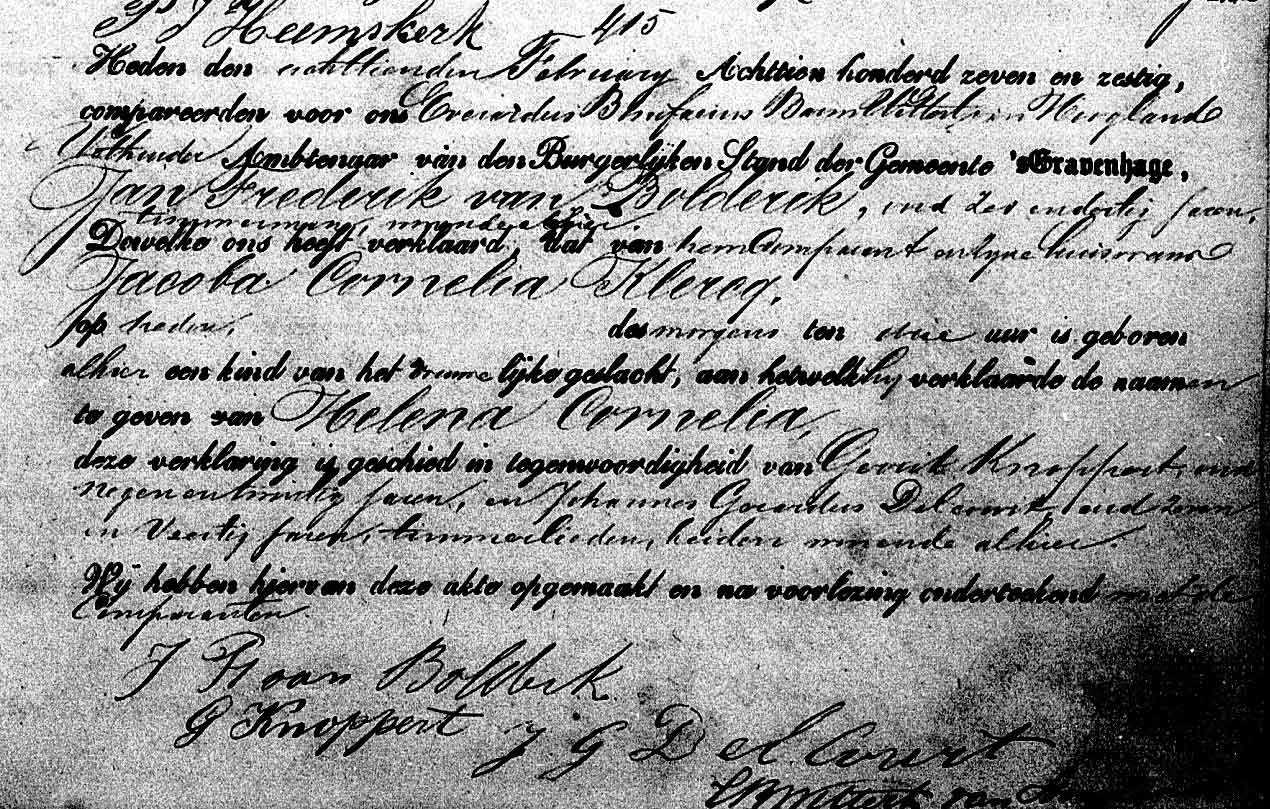 Heemskerk 415
Heden den achttienden February Achttien honderd zeven en zestig,
compareerden voor ons Everardus Bonifacius Baron Wittert van Hoogland
Wethouder Ambtenaar van den Burgerlijken Stand der Gemeente 'sGravenhage,
Jan Frederik van Bolderik, oud zes endertig jaren,
timmerman, wonende alhier.
Dewelke ons heeft verklaard, dat van hem Comparant en zyne huisvrouw
Jacoba Cornelia Klercq,
op heden, des morgens ten drie uur is geboren
alhier een kind van het vrouwelijke geslacht, aan hetwelk hij verklaarde de naamen
te geven van Helena Cornelia,
deze verklaring is geschied in tegenwoordigheid van Gerrit Knoppert, oud
negen en twintig jaren, en Johannes Gerardus Delcourt, oud zeven
en Veertig jaren, timmerlieden, beiden wonende alhier.
Wij hebben hiervan deze akte opgemaakt en na voorlezing onderteekend met de
Comparanten.
J F van Bolderik
G Knoppert J G Delcourt
Wittert van